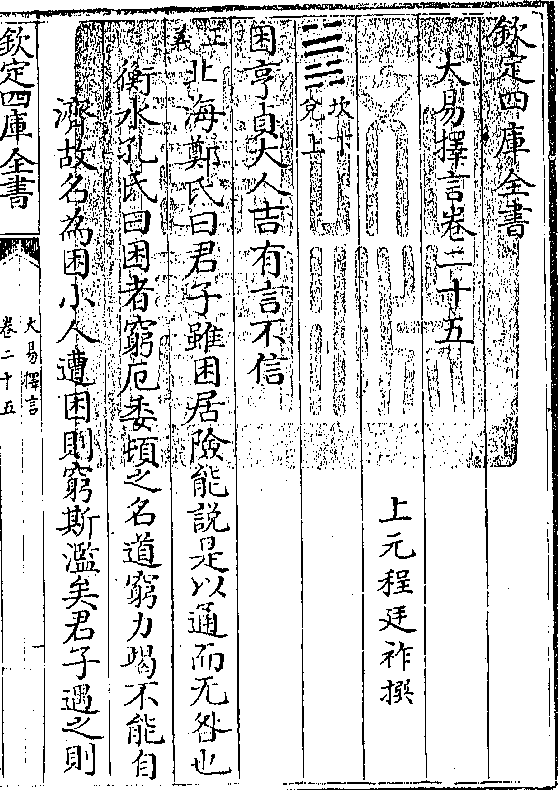 欽定四庫全書
大易擇言卷二十五
上元程廷祚撰
坎下
兌上
困亨貞大人吉有言不信
正義
北海鄭氏曰君子雖困居險能說是以通而无咎也
衡水孔氏曰困者窮厄委頓之名道窮力竭不能自
濟故名為困小人遭困則窮斯濫矣君子遇之則
欽定四庫全書
大易擇言
卷二十五